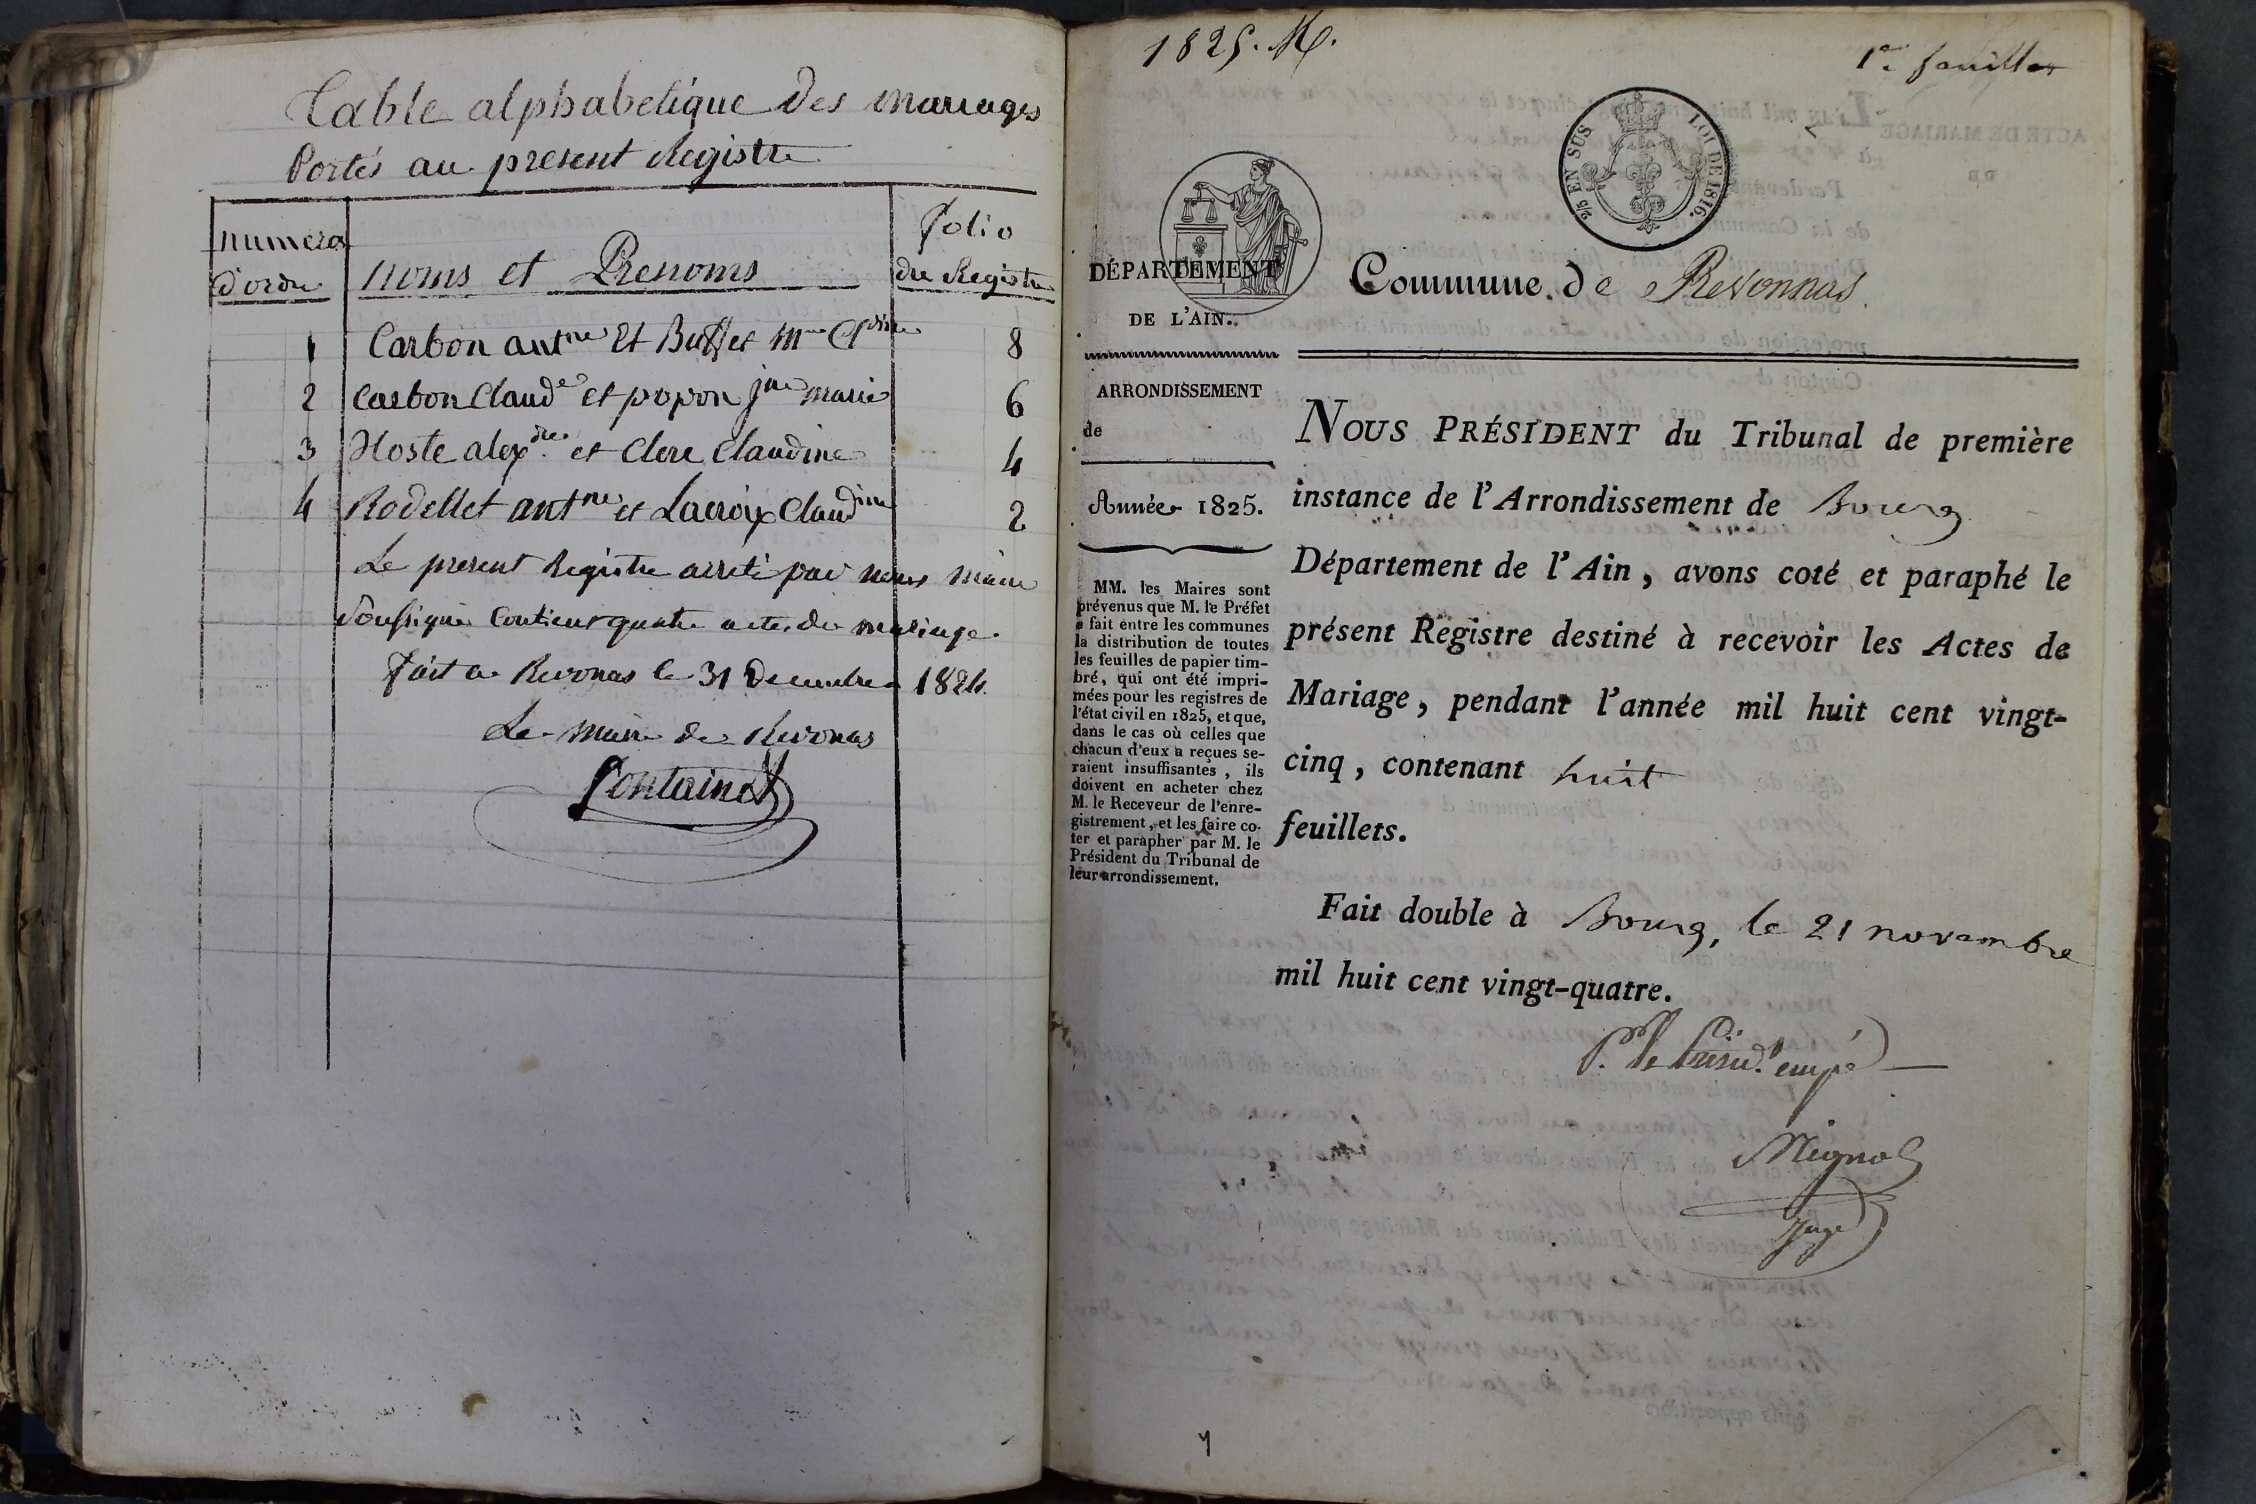 Table alphabetique des mariages
Portés au present Registre
numero
d'ordre
noms et Prenoms
folio
du Registre
1 Carbon antne Et Buffet Mie Cdine 8
2 Carbon Claude et popon jne marie 6
3 Hoste alexdre et Clerc Claudine 4
4 Rodellet antne et Lacroix Claudine 2
Le present Registre arreté par nous maire
soussigné Contient quatre actes de mariage.
fait a Revonas le 31 Decembre 1824.
Le maire de Revonas
1825. M.
1er feuillet
2/5 EN SUS
LOI DE 1816.
DÉPARTEMENT
DE L'AIN.
Commune de Revonnas
ARRONDISSEMENT
de
Année 1825.
MM. les Maires sont
prévenus que M. le Préfet
a fait entre les communes
la distribution de toutes
les feuilles de papier tim-
bré, qui ont été impri-
mées pour les registres de
l'état civil en 1825, et que,
dans le cas où celles que
chacun d'eux a reçues se-
raient insuffisantes, ils
doivent en acheter chez
M. le Receveur de l'enre-
gistrement, et les faire co-
ter et parapher par M. le
Président du Tribunal de
leur arrondissement.
NOUS PRÉSIDENT du Tribunal de première
instance de l'Arrondissement de Bourg
Département de l'Ain, avons coté et paraphé le
présent Registre destiné à recevoir les Actes de
Mariage, pendant l'année mil huit cent vingt-
cinq, contenant huit
feuillets.
Fait double à Bourg, le 21 novembre
mil huit cent vingt-quatre.
P. le Présidt. empé
Juge